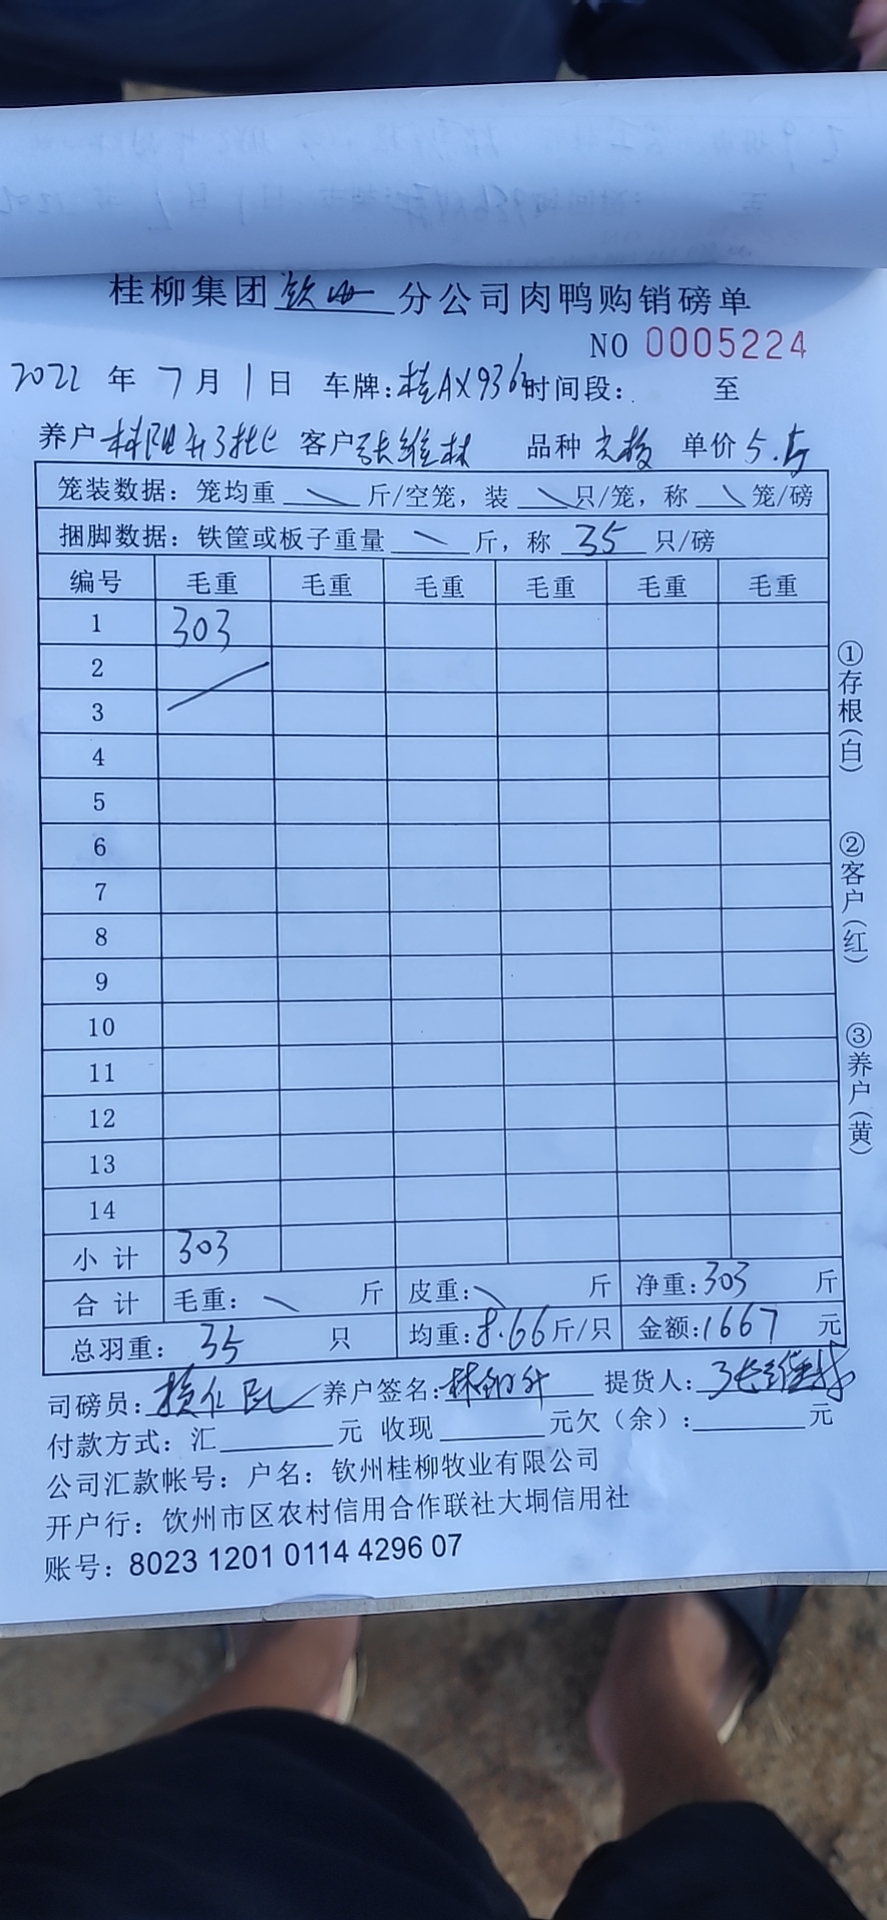 桂柳集团 钦州 分公司肉鸭购销磅单
NO 0005224
2022 年 7 月 1 日 车牌:桂AX936 时间段: 至
养户 客户 张维林 品种 单价 5.5
笼装数据:笼均重 斤/空笼,装 只/笼,称 笼/磅
捆脚数据:铁筐或板子重量 斤,称 35 只/磅
编号 毛重 毛重 毛重 毛重 毛重 毛重
1 303
2
3
4
5
6
7
8
9
10
11
12
13
14
小计 303
合计 毛重: 斤 皮重: 斤 净重:303 斤
总羽重: 35 只 均重:8.66斤/只 金额:1667 元
司磅员: 养户签名: 提货人:张维林
付款方式:汇 元 收现 元欠(余): 元
公司汇款帐号:户名:钦州桂柳牧业有限公司
开户行:钦州市区农村信用合作联社大垌信用社
账号:8023 1201 0114 4296 07
①存根(白)
②客户(红)
③养户(黄)